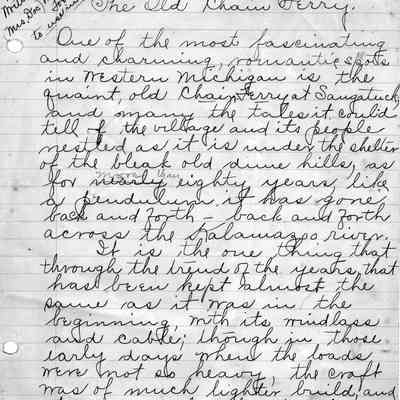 Mrs. Dos
The Old Chain Ferry.
One of the most fascinating
and charming, romantic spots
in Western Michigan is the
quaint, old Chain Ferry at Saugatuck,
and many the tales it could
till of the village and its people
nestled as it is under the shelter
of the bleak old dune hills, as
for nearly more than eighty years, like
a pendulum it has gone
back and forth – back and forth
across the Kalamazoo river.
It is the one thing that
through the trend of the years, that
has been kept almost the
same as it was in the
beginning, with its windlass
and cable; though in those
early days when the loads
were not so heavy, the craft
was of much lighter build, and